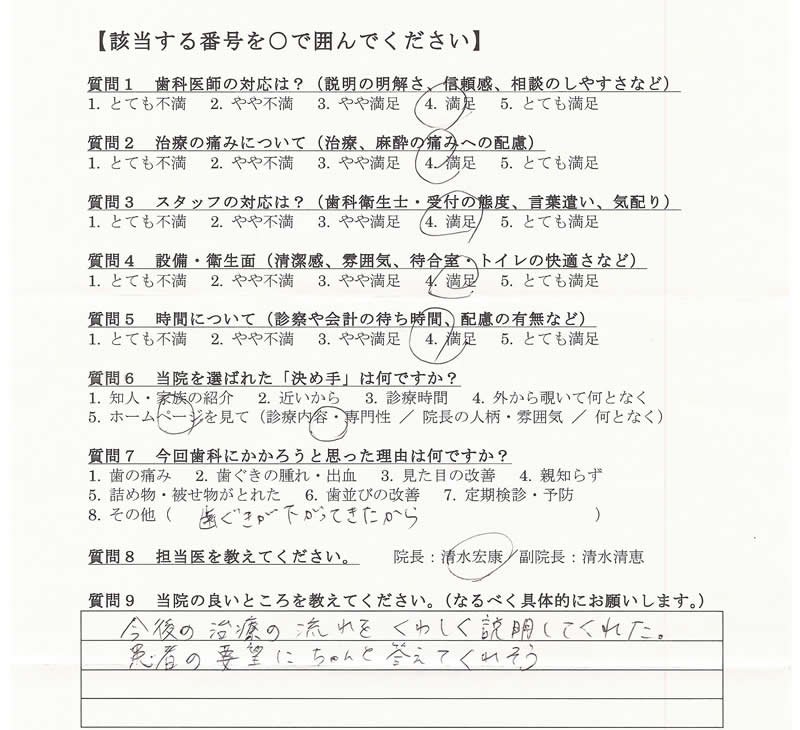 【該当する番号を〇で囲んでください】
質問1 歯科医師の対応は?(説明の明解さ、信頼感、相談のしやすさなど)
1. とても不満 2. やや不満 3. やや満足 4. 満足 5. とても満足
質問2 治療の痛みについて(治療、麻酔の痛みへの配慮)
1. とても不満 2. やや不満 3. やや満足 4. 満足 5. とても満足
質問3 スタッフの対応は?(歯科衛生士・受付の態度、言葉遣い、気配り)
1. とても不満 2. やや不満 3. やや満足 4. 満足 5. とても満足
質問4 設備・衛生面(清潔感、雰囲気、待合室・トイレの快適さなど)
1. とても不満 2. やや不満 3. やや満足 4. 満足 5. とても満足
質問5 時間について(診察や会計の待ち時間、配慮の有無など)
1. とても不満 2. やや不満 3. やや満足 4. 満足 5. とても満足
質問6 当院を選ばれた「決め手」は何ですか?
1. 知人・家族の紹介 2. 近いから 3. 診療時間 4. 外から覗いて何となく
5. ホームページを見て(診療内容・専門性 / 院長の人柄・雰囲気 / 何となく)
質問7 今回歯科にかかろうと思った理由は何ですか?
1. 歯の痛み 2. 歯ぐきの腫れ・出血 3. 見た目の改善 4. 親知らず
5. 詰め物・被せ物がとれた 6. 歯並びの改善 7. 定期検診・予防
8. その他( 歯ぐきが下がってきたから )
質問8 担当医を教えてください。 院長:清水宏康/副院長:清水清恵
質問9 当院の良いところを教えてください。(なるべく具体的にお願いします。)
今後の治療の流れをくわしく説明してくれた。
患者の要望にちゃんと答えてくれそう